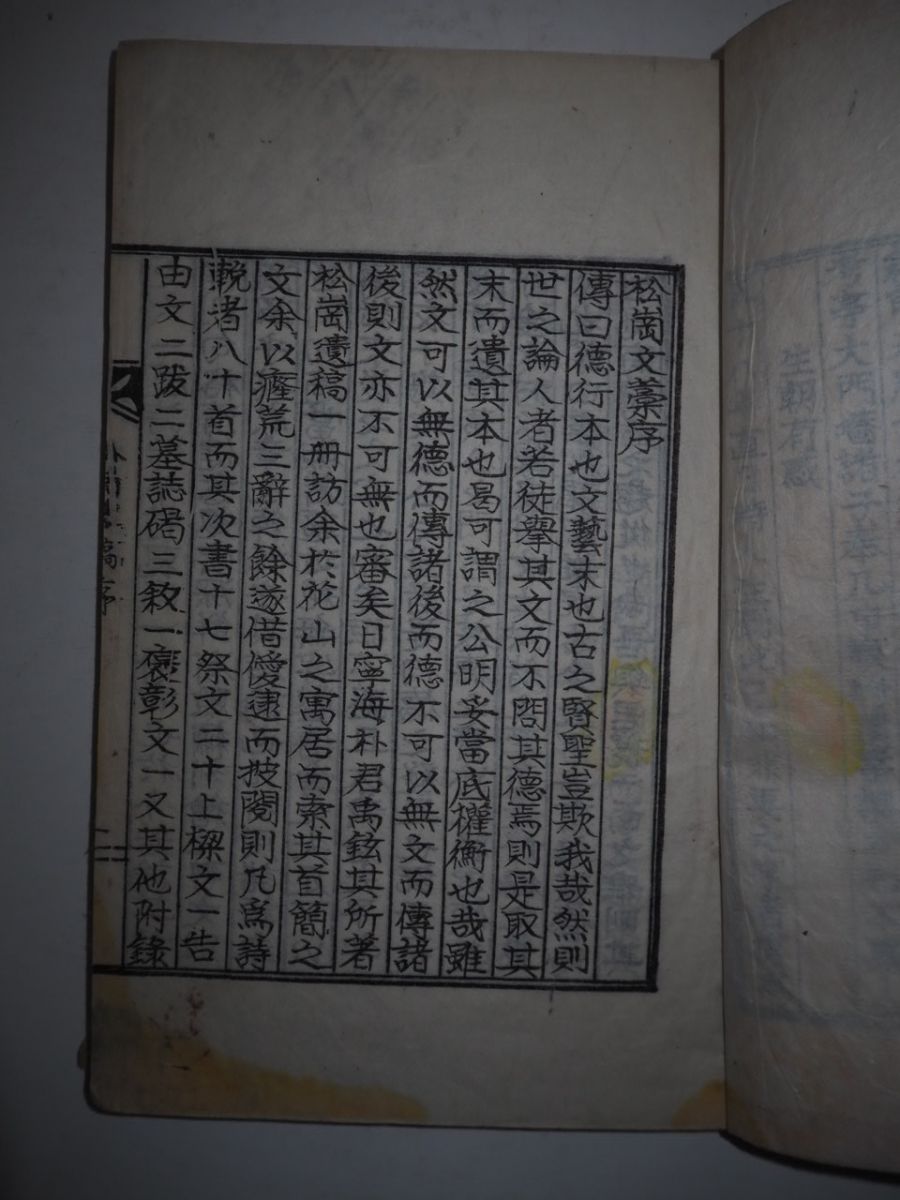 松崗文藁序
傳曰德行本也文藝末也古之賢聖豈欺我哉然則
世之論人者若徒擧其文而不問其德焉則是取其
末而遺其本也曷可謂之公明妥當底權衡也哉雖
然文可以無德而傳諸後而德不可以無文而傳諸
後則文亦不可無也審矣日寧海朴君禹鉉其所著
松崗遺稿一册訪余於花山之寓居而索其首簡之
文余以癃荒三辭之餘遂借僾逮而披閱則凡爲詩
輓者八十首而其次書十七祭文二十上樑文一告
由文二跋二墓誌碣三敘一襃彰文一又其他附錄
稿序
生朝有感